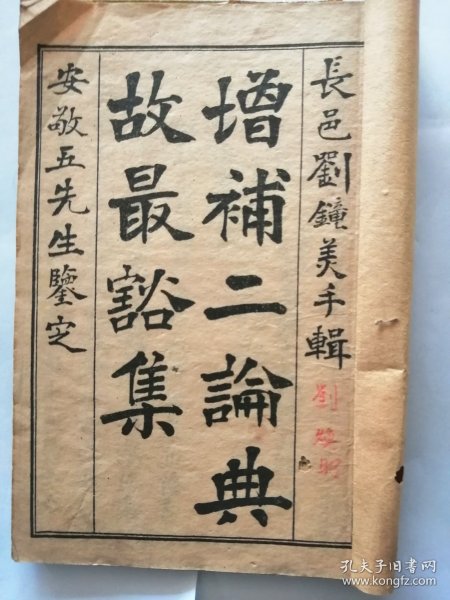 長邑劉鐘美手輯
增補二論典
故最豁集
安敬五先生鑒定
劉
孔夫子旧书网
www.kongfz.com